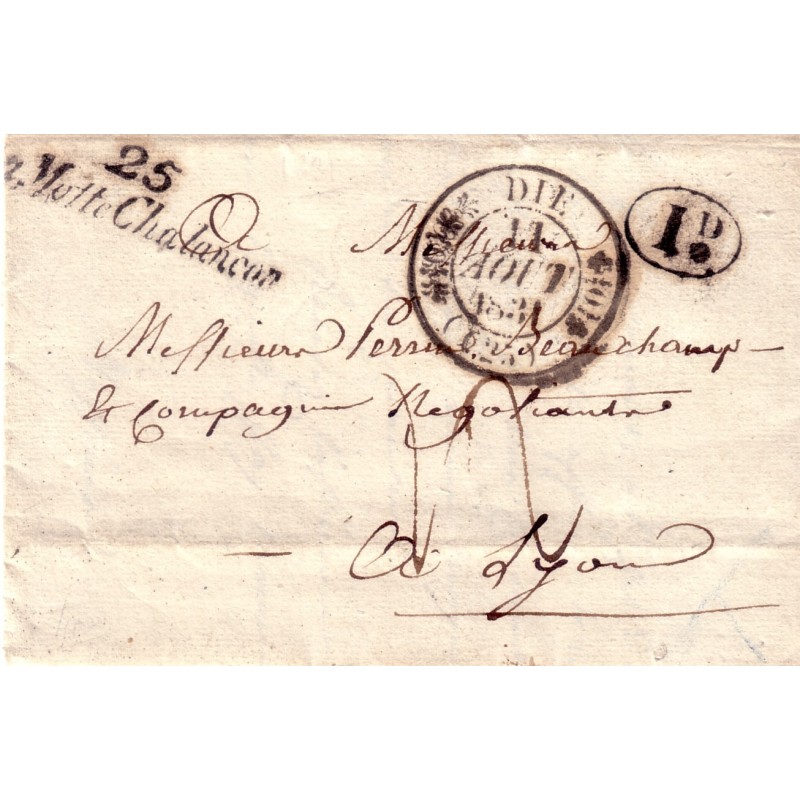 25
La Motte Chalancon
DIE
11
AOUT
183
(25)
1 D
A Messieurs
Messieurs Perrin Beauchamp
& Compagnie Negotiants
A Lyon